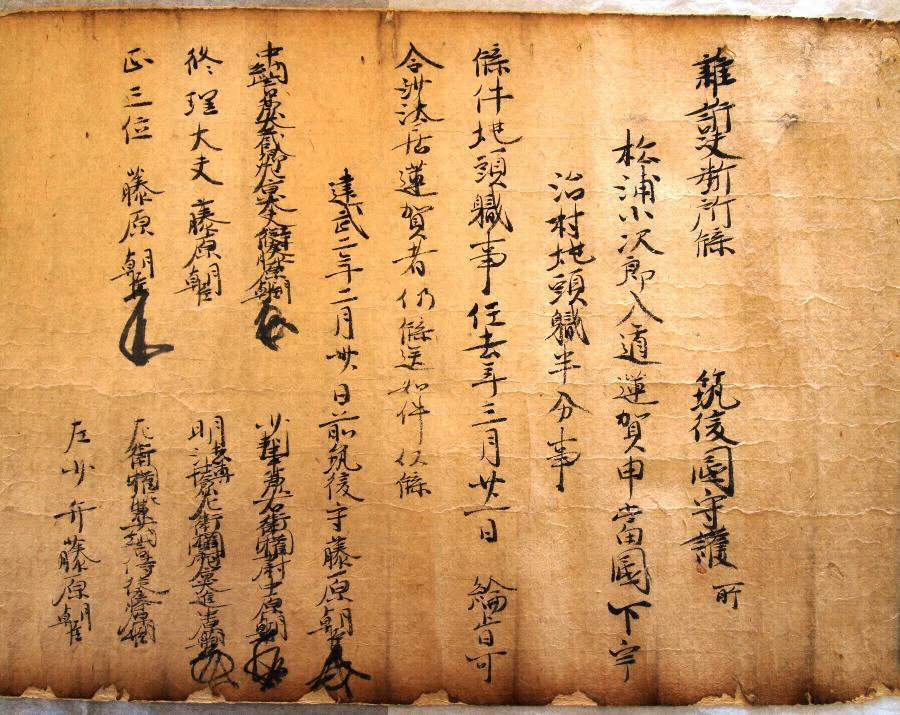 雜訴決断所牒 筑後國守護所
松浦小次郎入道蓮賀申當國下宇
治村地頭職半分事
牒件地頭職事任去年三月廿一日 綸旨可
令沙汰居蓮賀者仍牒送如件以牒
建武二年二月廿日前筑後守藤原朝臣
中納言 藤原朝臣
少判事 右衛門 中原朝臣
修理大夫藤原朝臣
明法博士 左衛門
正三位藤原朝臣
左衛門
左少弁藤原朝臣